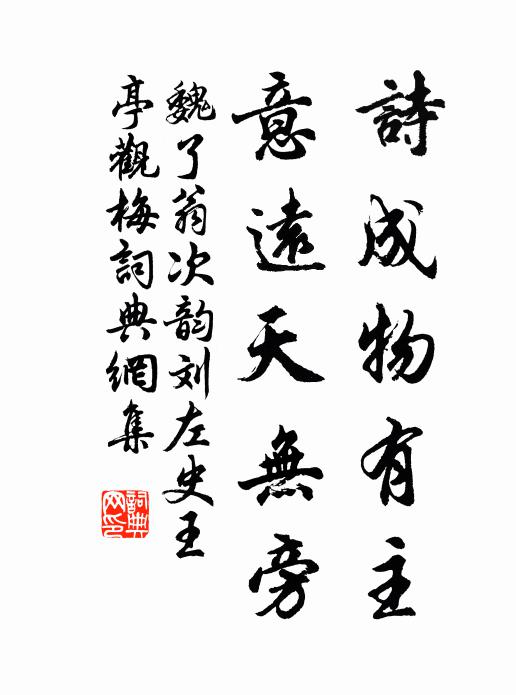 詩成物有主
意遠天無旁
魏了翁次韵刘左史王
亭觀梅詞典網集
詞典
网印